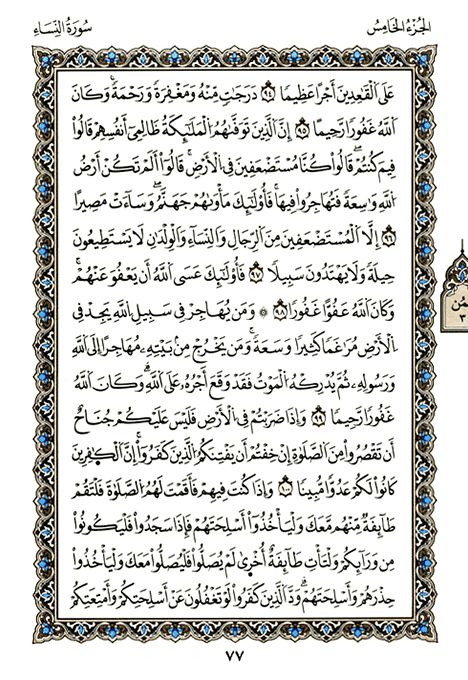 الجُزْءُ الخَامِسُ
سُورَةُ النِّسَاءِ
عَلَى ٱلۡقَٰعِدِينَ أَجۡرًا عَظِيمٗا ٩٤ دَرَجَٰتٖ مِّنۡهُ وَمَغۡفِرَةٗ وَرَحۡمَةٗۚ وَكَانَ
ٱللَّهُ غَفُورٗا رَّحِيمًا ٩٥ إِنَّ ٱلَّذِينَ تَوَفَّىٰهُمُ ٱلۡمَلَٰٓئِكَةُ ظَالِمِيٓ أَنفُسِهِمۡ قَالُواْ
فِيمَ كُنتُمۡۖ قَالُواْ كُنَّا مُسۡتَضۡعَفِينَ فِي ٱلۡأَرۡضِۚ قَالُوٓاْ أَلَمۡ تَكُنۡ أَرۡضُ
ٱللَّهِ وَٰسِعَةٗ فَتُهَاجِرُواْ فِيهَاۚ فَأُوْلَٰٓئِكَ مَأۡوَىٰهُمۡ جَهَنَّمُۖ وَسَآءَتۡ مَصِيرًا
٩٦ إِلَّا ٱلۡمُسۡتَضۡعَفِينَ مِنَ ٱلرِّجَالِ وَٱلنِّسَآءِ وَٱلۡوِلۡدَٰنِ لَا يَسۡتَطِيعُونَ
حِيلَةٗ وَلَا يَهۡتَدُونَ سَبِيلٗا ٩٧ فَأُوْلَٰٓئِكَ عَسَى ٱللَّهُ أَن يَعۡفُوَ عَنۡهُمۡۚ
وَكَانَ ٱللَّهُ عَفُوًّا غَفُورٗا ٩٨ ۞ وَمَن يُهَاجِرۡ فِي سَبِيلِ ٱللَّهِ يَجِدۡ فِي
ٱلۡأَرۡضِ مُرَٰغَمٗا كَثِيرٗا وَسَعَةٗۚ وَمَن يَخۡرُجۡ مِنۢ بَيۡتِهِۦ مُهَاجِرًا إِلَى ٱللَّهِ
وَرَسُولِهِۦ ثُمَّ يُدۡرِكۡهُ ٱلۡمَوۡتُ فَقَدۡ وَقَعَ أَجۡرُهُۥ عَلَى ٱللَّهِۗ وَكَانَ ٱللَّهُ
غَفُورٗا رَّحِيمٗا ٩٩ وَإِذَا ضَرَبۡتُمۡ فِي ٱلۡأَرۡضِ فَلَيۡسَ عَلَيۡكُمۡ جُنَاحٌ
أَن تَقۡصُرُواْ مِنَ ٱلصَّلَوٰةِ إِنۡ خِفۡتُمۡ أَن يَفۡتِنَكُمُ ٱلَّذِينَ كَفَرُوٓاْۚ إِنَّ ٱلۡكَٰفِرِينَ
كَانُواْ لَكُمۡ عَدُوّٗا مُّبِينٗا ١٠٠ وَإِذَا كُنتَ فِيهِمۡ فَأَقَمۡتَ لَهُمُ ٱلصَّلَوٰةَ فَلۡتَقُمۡ
طَآئِفَةٞ مِّنۡهُم مَّعَكَ وَلۡيَأۡخُذُوٓاْ أَسۡلِحَتَهُمۡ فَإِذَا سَجَدُواْ فَلۡيَكُونُواْ
مِن وَرَآئِكُمۡ وَلۡتَأۡتِ طَآئِفَةٌ أُخۡرَىٰ لَمۡ يُصَلُّواْ فَلۡيُصَلُّواْ مَعَكَ وَلۡيَأۡخُذُواْ
حِذۡرَهُمۡ وَأَسۡلِحَتَهُمۡۗ وَدَّ ٱلَّذِينَ كَفَرُواْ لَوۡ تَغۡفُلُونَ عَنۡ أَسۡلِحَتِكُمۡ وَأَمۡتِعَتِكُمۡ
ثمن
٣
٧٧